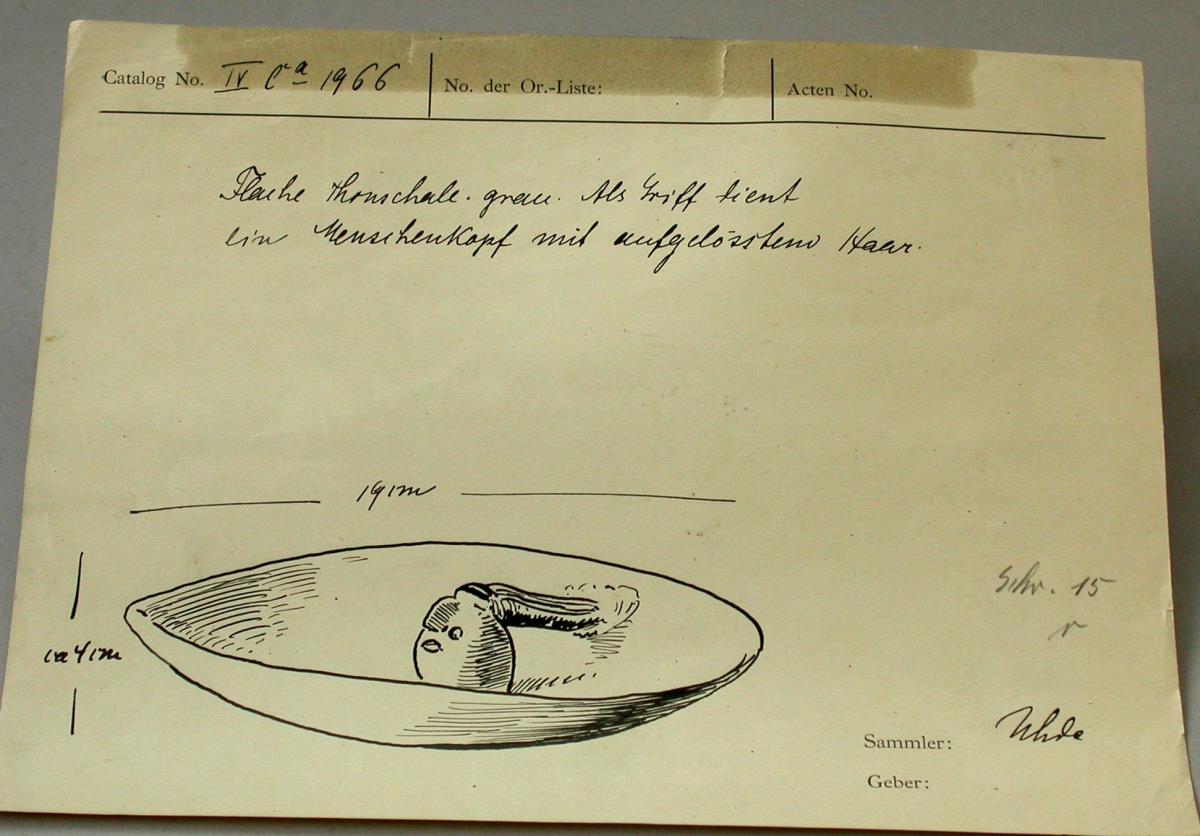 Catalog No. IV Ca 1966 No. der Or.-Liste: Acten No.
Flache Thonschale. grau. Als Griff dient
ein Menschenkopf mit aufgelösstem Haar.
19 cm
ca 4 cm
Schr. 15
r
Sammler: Uhde
Geber: